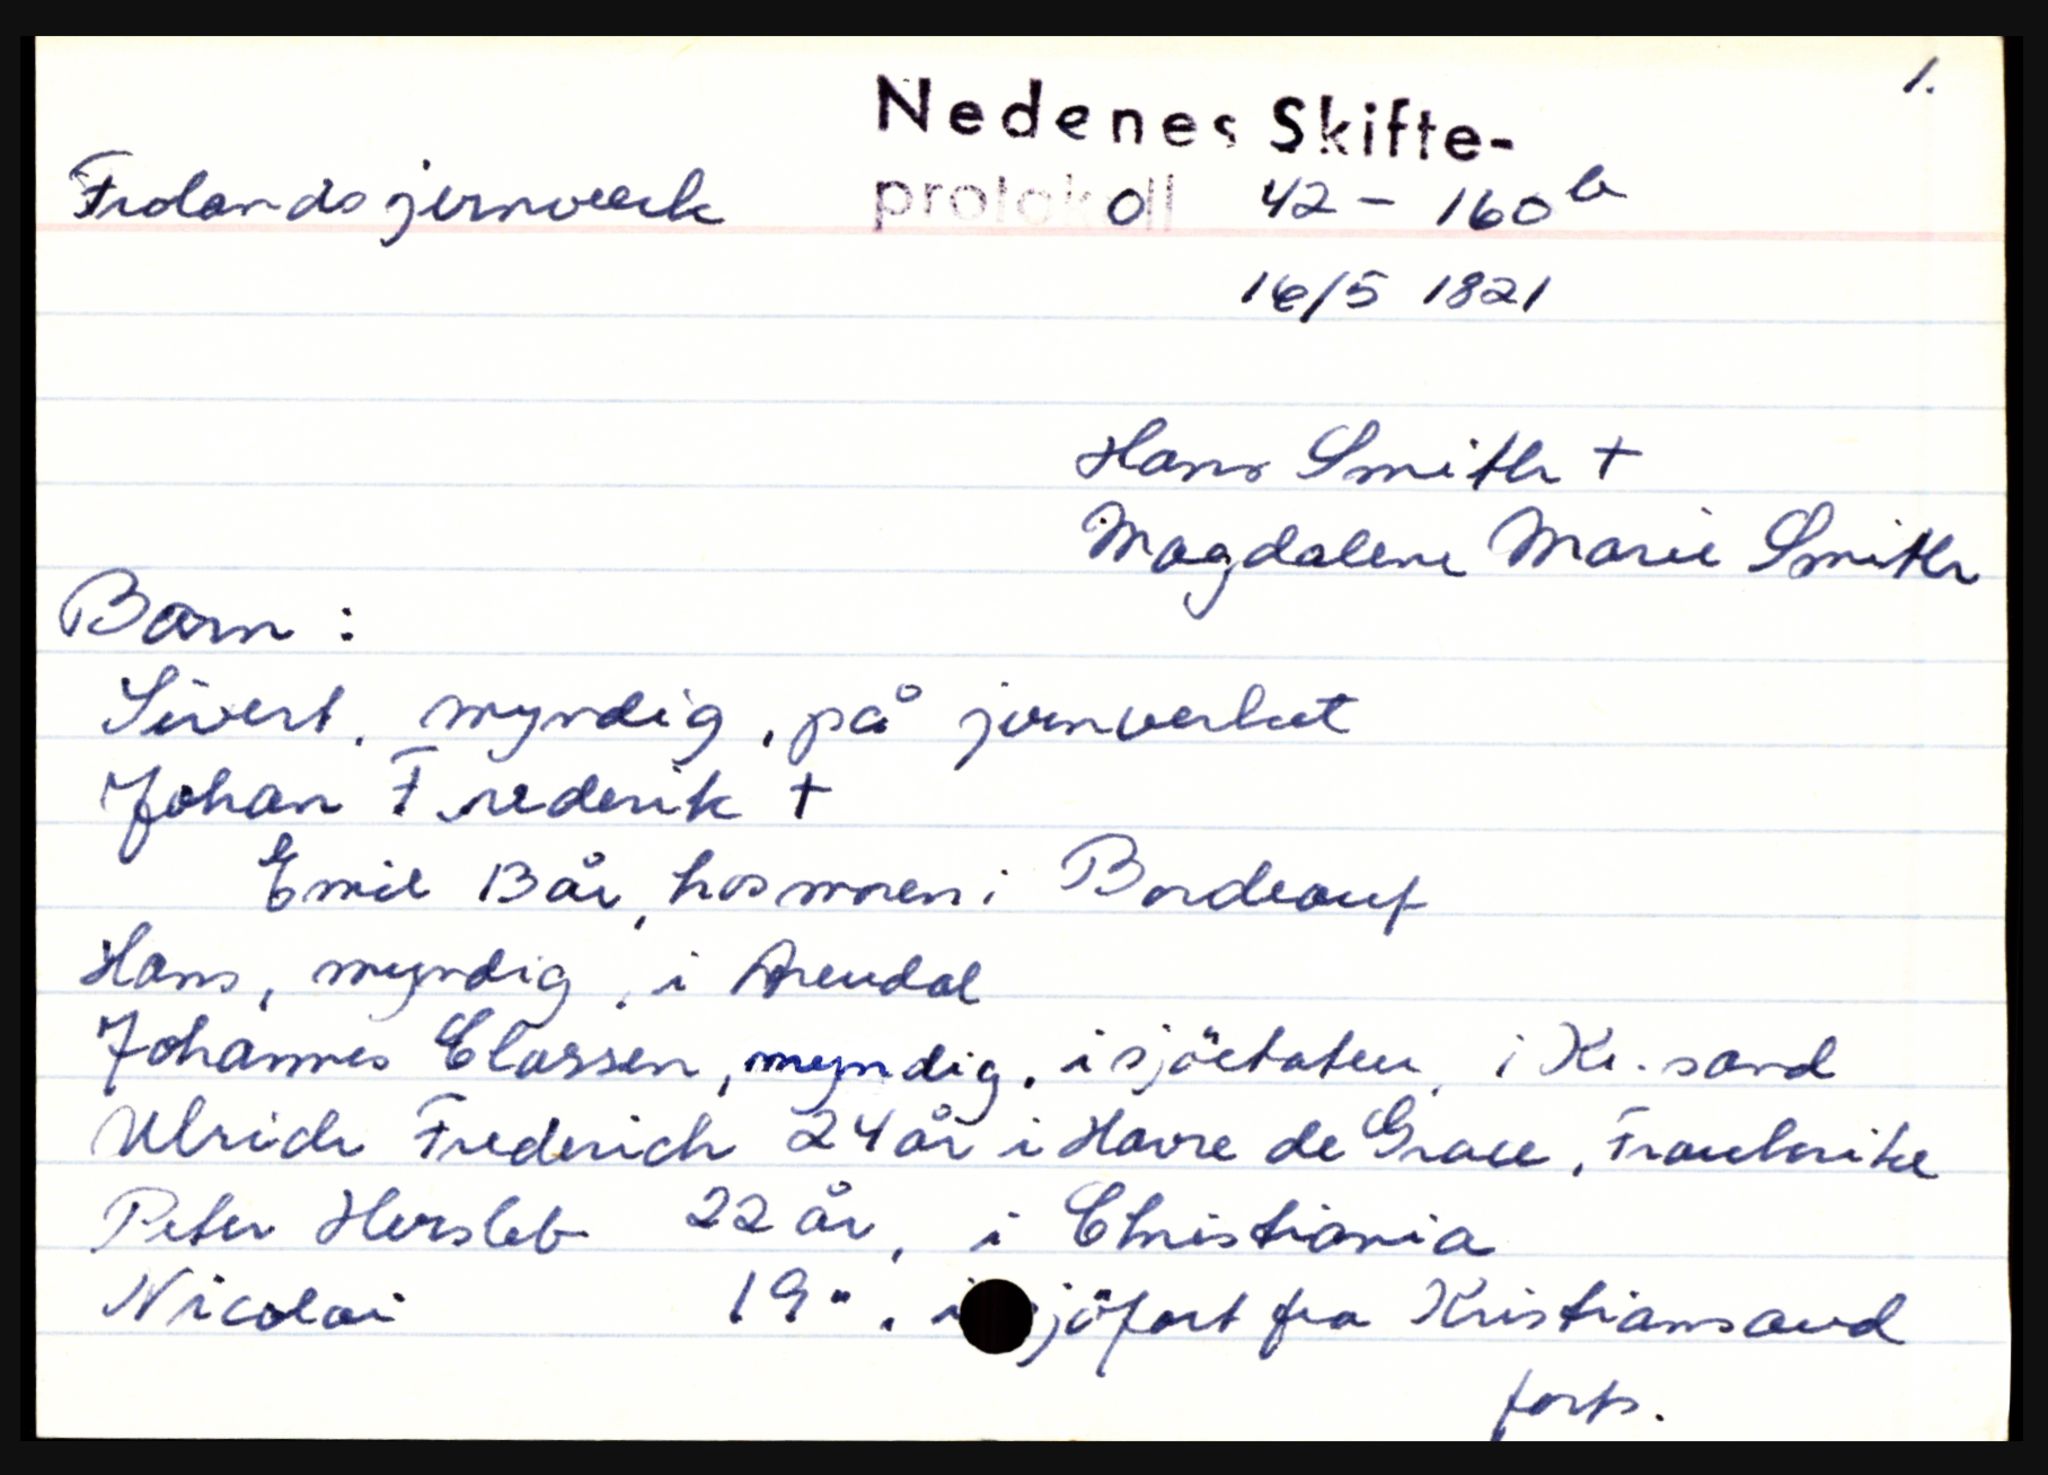 1.
Nedenes Skifte-
Frolands jernverk protokoll 42 - 160b
16/5 1821
Hans Smith +
Magdalene Marie Smith
Barn :
Sivert, myndig, på jernverket
Johan Frederik +
Emil 13 år, hos moren i Bordeaux
Hans, myndig, i Arendal
Johannes Classen, myndig, i sjöetaten, i Kr.sand
Ulrich Frederich 24 år i Havre de Grace, Frankrike
Peter Hersleb 22 år, i Christiania
Nicolai 19 ", i sjöfart fra Kristiansand
forts.